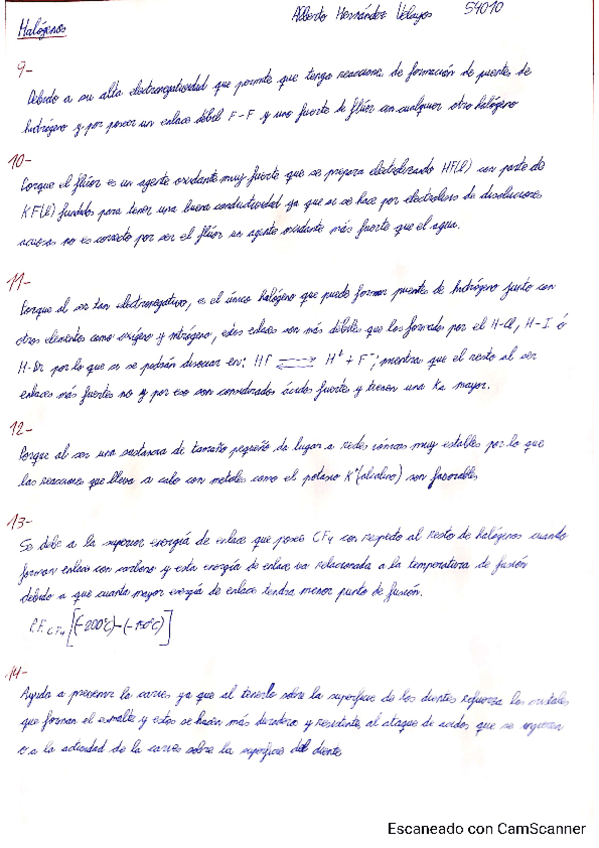 Alberto Hernández Velayos 54010
Halógenos
9-
Debido a su alta electronegatividad que permite que tenga reacciones de formación de puentes de
hidrógeno y por poseer un enlace débil F-F y uno fuerte de flúor con cualquier otro halógeno
10-
Porque el flúor es un agente oxidante muy fuerte que se prepara electrolizando HF(l) con parte de
KF(l) fundidos para tener una buena conductividad ya que si se hace por electrolisis de disoluciones
acuosas no es correcto por ser el flúor un agente oxidante más fuerte que el agua.
11-
Porque al ser tan electronegativo, es el único halógeno que puede formar puentes de hidrógeno junto con
otros elementos como oxígeno y nitrógeno, estos enlaces son más débiles que los formados por el H-Cl, H-I ó
H-Br por lo que si se podrán disociar en: HF ⇌ H⁺ + F⁻; mientras que el resto al ser
enlaces más fuertes no y por eso son considerados ácidos fuertes y tienen una Ka mayor.
12-
Porque al ser una sustancia de tamaño pequeño da lugar a redes iónicas muy estables por lo que
las reacciones que lleva a cabo con metales como el potasio K⁺(alcalino) son favorables
13-
Se debe a la superior energía de enlace que posee CF4 con respecto al resto de halógenos cuando
forman enlace con carbono y esta energía de enlace va relacionada a la temperatura de fusión
debido a que cuanta mayor energía de enlace tendra menor punto de fusión.
P.F. CF4 [(-200ºC)-(-150ºC)]
14-
Ayuda a prevenir la caries ya que al tenerlo sobre la superficie de los dientes refuerza los cristales
que forman el esmalte y estos se hacen más duraderos y resistentes al ataque de acidos que se
a la actividad de la caries sobre la superficie del diente
Escaneado con CamScanner